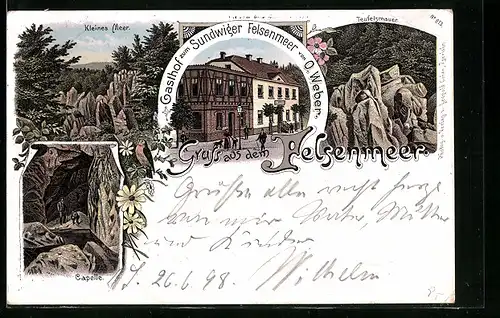 Kleines Meer.
Gasthof zum Sundwiger Felsenmeer von O. Weber.
Teufelsmauer.
Gruss aus dem Felsenmeer.
Capelle.
Grüße alle recht
von mir Vater, Mutter
und Kinder
26.6.98. Wilhelm